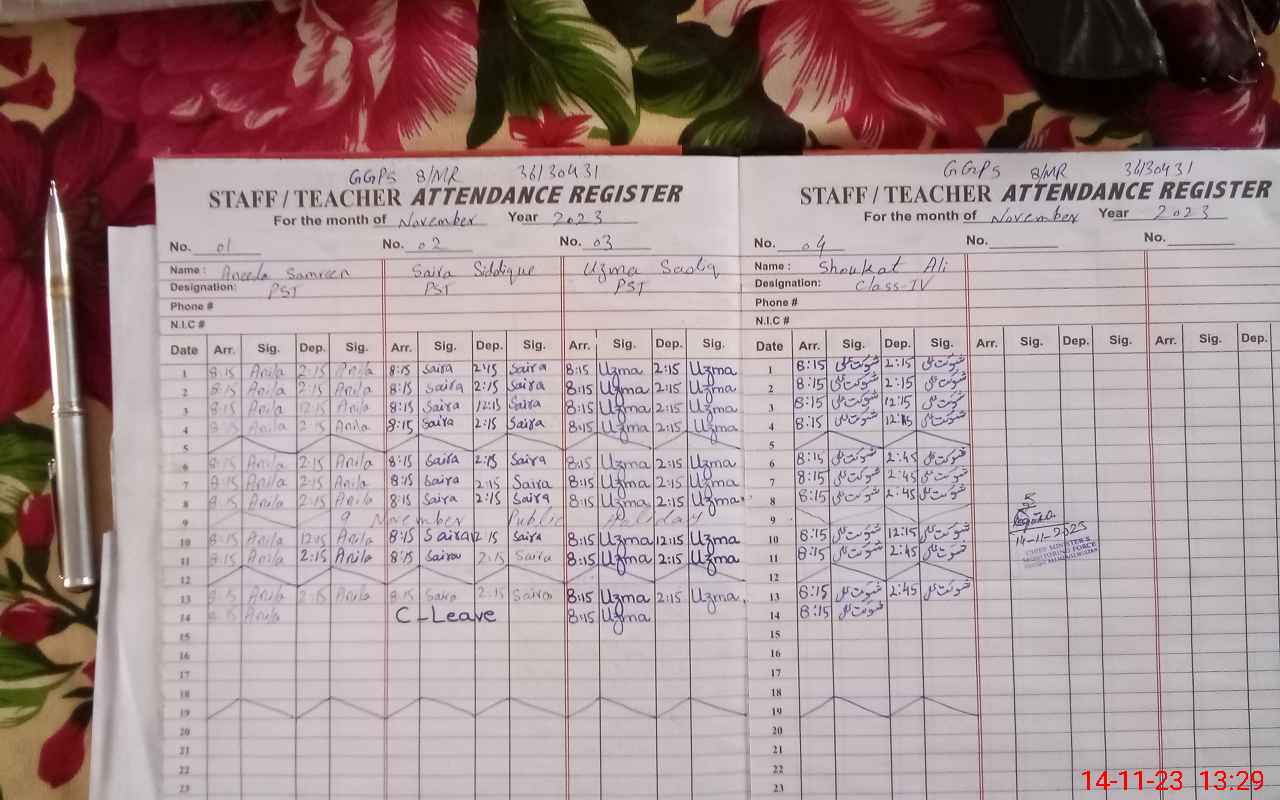 GGPS 8/MR 36130431
STAFF / TEACHER ATTENDANCE REGISTER
For the month of November Year 2023
No. 01 No. 02 No. 03
Name : Aneela Samreen Saira Siddique Uzma Sadiq
Designation: PST PST PST
Phone #
N.I.C #
Date Arr. Sig. Dep. Sig. Arr. Sig. Dep. Sig. Arr. Sig. Dep. Sig.
1 8:15 Anila 2:15 Anila 8:15 Saira 2:15 Saira 8:15 Uzma 2:15 Uzma
2 8:15 Anila 2:15 Anila 8:15 Saira 2:15 Saira 8:15 Uzma 2:15 Uzma
3 8:15 Anila 12:15 Anila 8:15 Saira 12:15 Saira 8:15 Uzma 2:15 Uzma
4 8:15 Anila 2:15 Anila 8:15 Saira 2:15 Saira 8:15 Uzma 2:15 Uzma
5
6 8:15 Anila 2:15 Anila 8:15 Saira 2:15 Saira 8:15 Uzma 2:15 Uzma
7 8:15 Anila 2:15 Anila 8:15 Saira 2:15 Saira 8:15 Uzma 2:15 Uzma
8 8:15 Anila 2:15 Anila 8:15 Saira 2:15 Saira 8:15 Uzma 2:15 Uzma
9 9 November Public Holiday
10 8:15 Anila 12:15 Anila 8:15 Saira 12:15 Saira 8:15 Uzma 12:15 Uzma
11 8:15 Anila 2:15 Anila 8:15 Saira 2:15 Saira 8:15 Uzma 2:15 Uzma
12
13 8:15 Anila 2:15 Anila 8:15 Saira 2:15 Saira 8:15 Uzma 2:15 Uzma
14 8:15 Anila C_Leave 8:15 Uzma
15
16
17
18
19
20
21
22
23
GGPS 8/MR 36130431
STAFF / TEACHER ATTENDANCE REGISTER
For the month of November Year 2023
No. 04 No. No.
Name : Shoukat Ali
Designation: Class-IV
Phone #
N.I.C #
Date Arr. Sig. Dep. Sig. Arr. Sig. Dep. Sig. Arr. Sig. Dep.
1 8:15 شوکت علی 2:15 شوکت علی
2 8:15 شوکت علی 2:15 شوکت علی
3 8:15 شوکت علی 12:15 شوکت علی
4 8:15 شوکت علی شوکت علی
5
6 8:15 شوکت علی 2:45 شوکت علی
7 8:15 شوکت علی 2:45 شوکت علی
8 8:15 شوکت علی 2:45 شوکت علی
9
10 8:15 شوکت علی 12:15 شوکت علی
11 8:15 شوکت علی 2:45 شوکت علی
12
13 8:15 شوکت علی 2:45 شوکت علی
14 8:15 شوکت علی
15
16
17
18
19
20
21
22
23
14-11-2023
CHIEF MINISTER'S
MONITORING FORCE
14-11-23 13:29